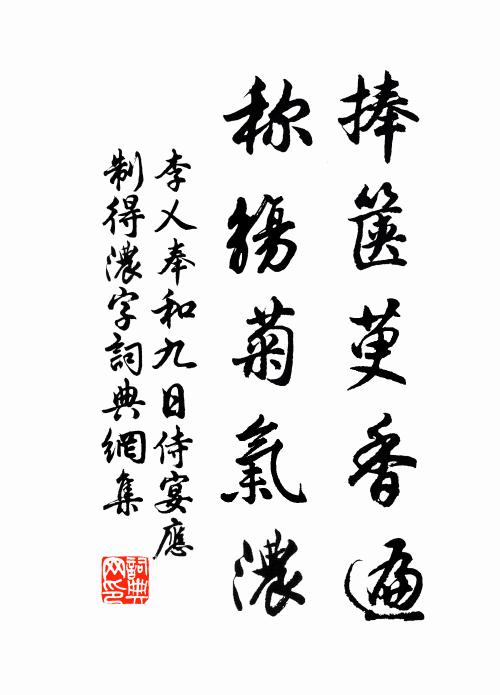 捧篋萸香遍
称觴菊氣濃
李乂奉和九日侍宴應
制得濃字詞典網集
詞典
网印